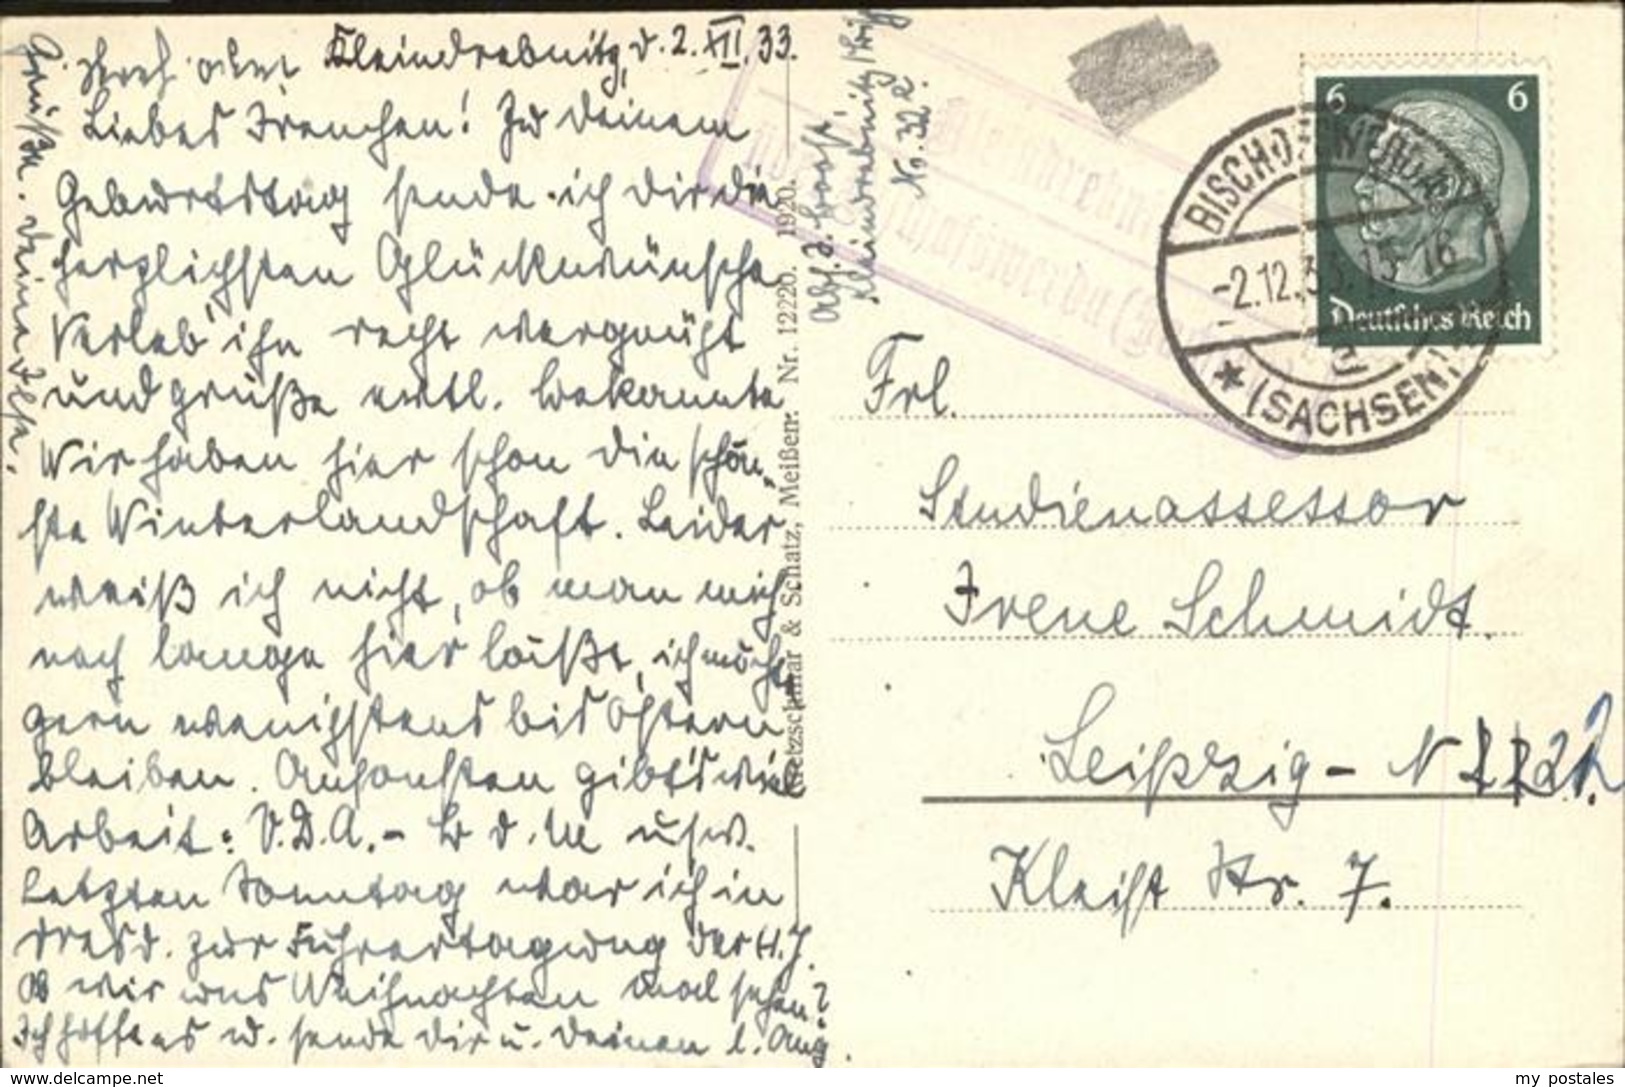 Kleindrebnitz, d. 2. XII. 33.
Liebes Irenchen! Zu Deinem
Geburtstag sende ich Dir die
herzlichsten Glückwünsche
Verleb' ihn recht vergnügt
und grüße evtl. Bekannte
Wir haben hier schon die schön-
ste Winterlandschaft. Leider
weiß ich nicht, ob man mich
noch lange hier läßt, ich möchte
gern wenigstens bis Ostern
bleiben. Ansonsten gibt's viel
Arbeit: V.D.A. - B d. M usw.
Letzten Sonntag war ich in
Dresd. zur Führertagung der H.J.
Ob wir uns Weihnachten mal sehen?
Ich hoffe es u. sende Dir u. Deinen l. Ang.
Grüße. Deine Ilse.
Kretzschmar & Schatz, Meißen. Nr. 12220. 1920.
Abs. I.
Kleindrebnitz
No. 32
Kleindrebnitz
über Bischofswerda (Sa
BISCHOFSWERDA
-2.12.33.15-16
* (SACHSEN)
6 6
Deutsches Reich
Frl.
Studienassessor
Irene Schmidt.
Leipzig - N 22
Kleist Str. 7.
my postales